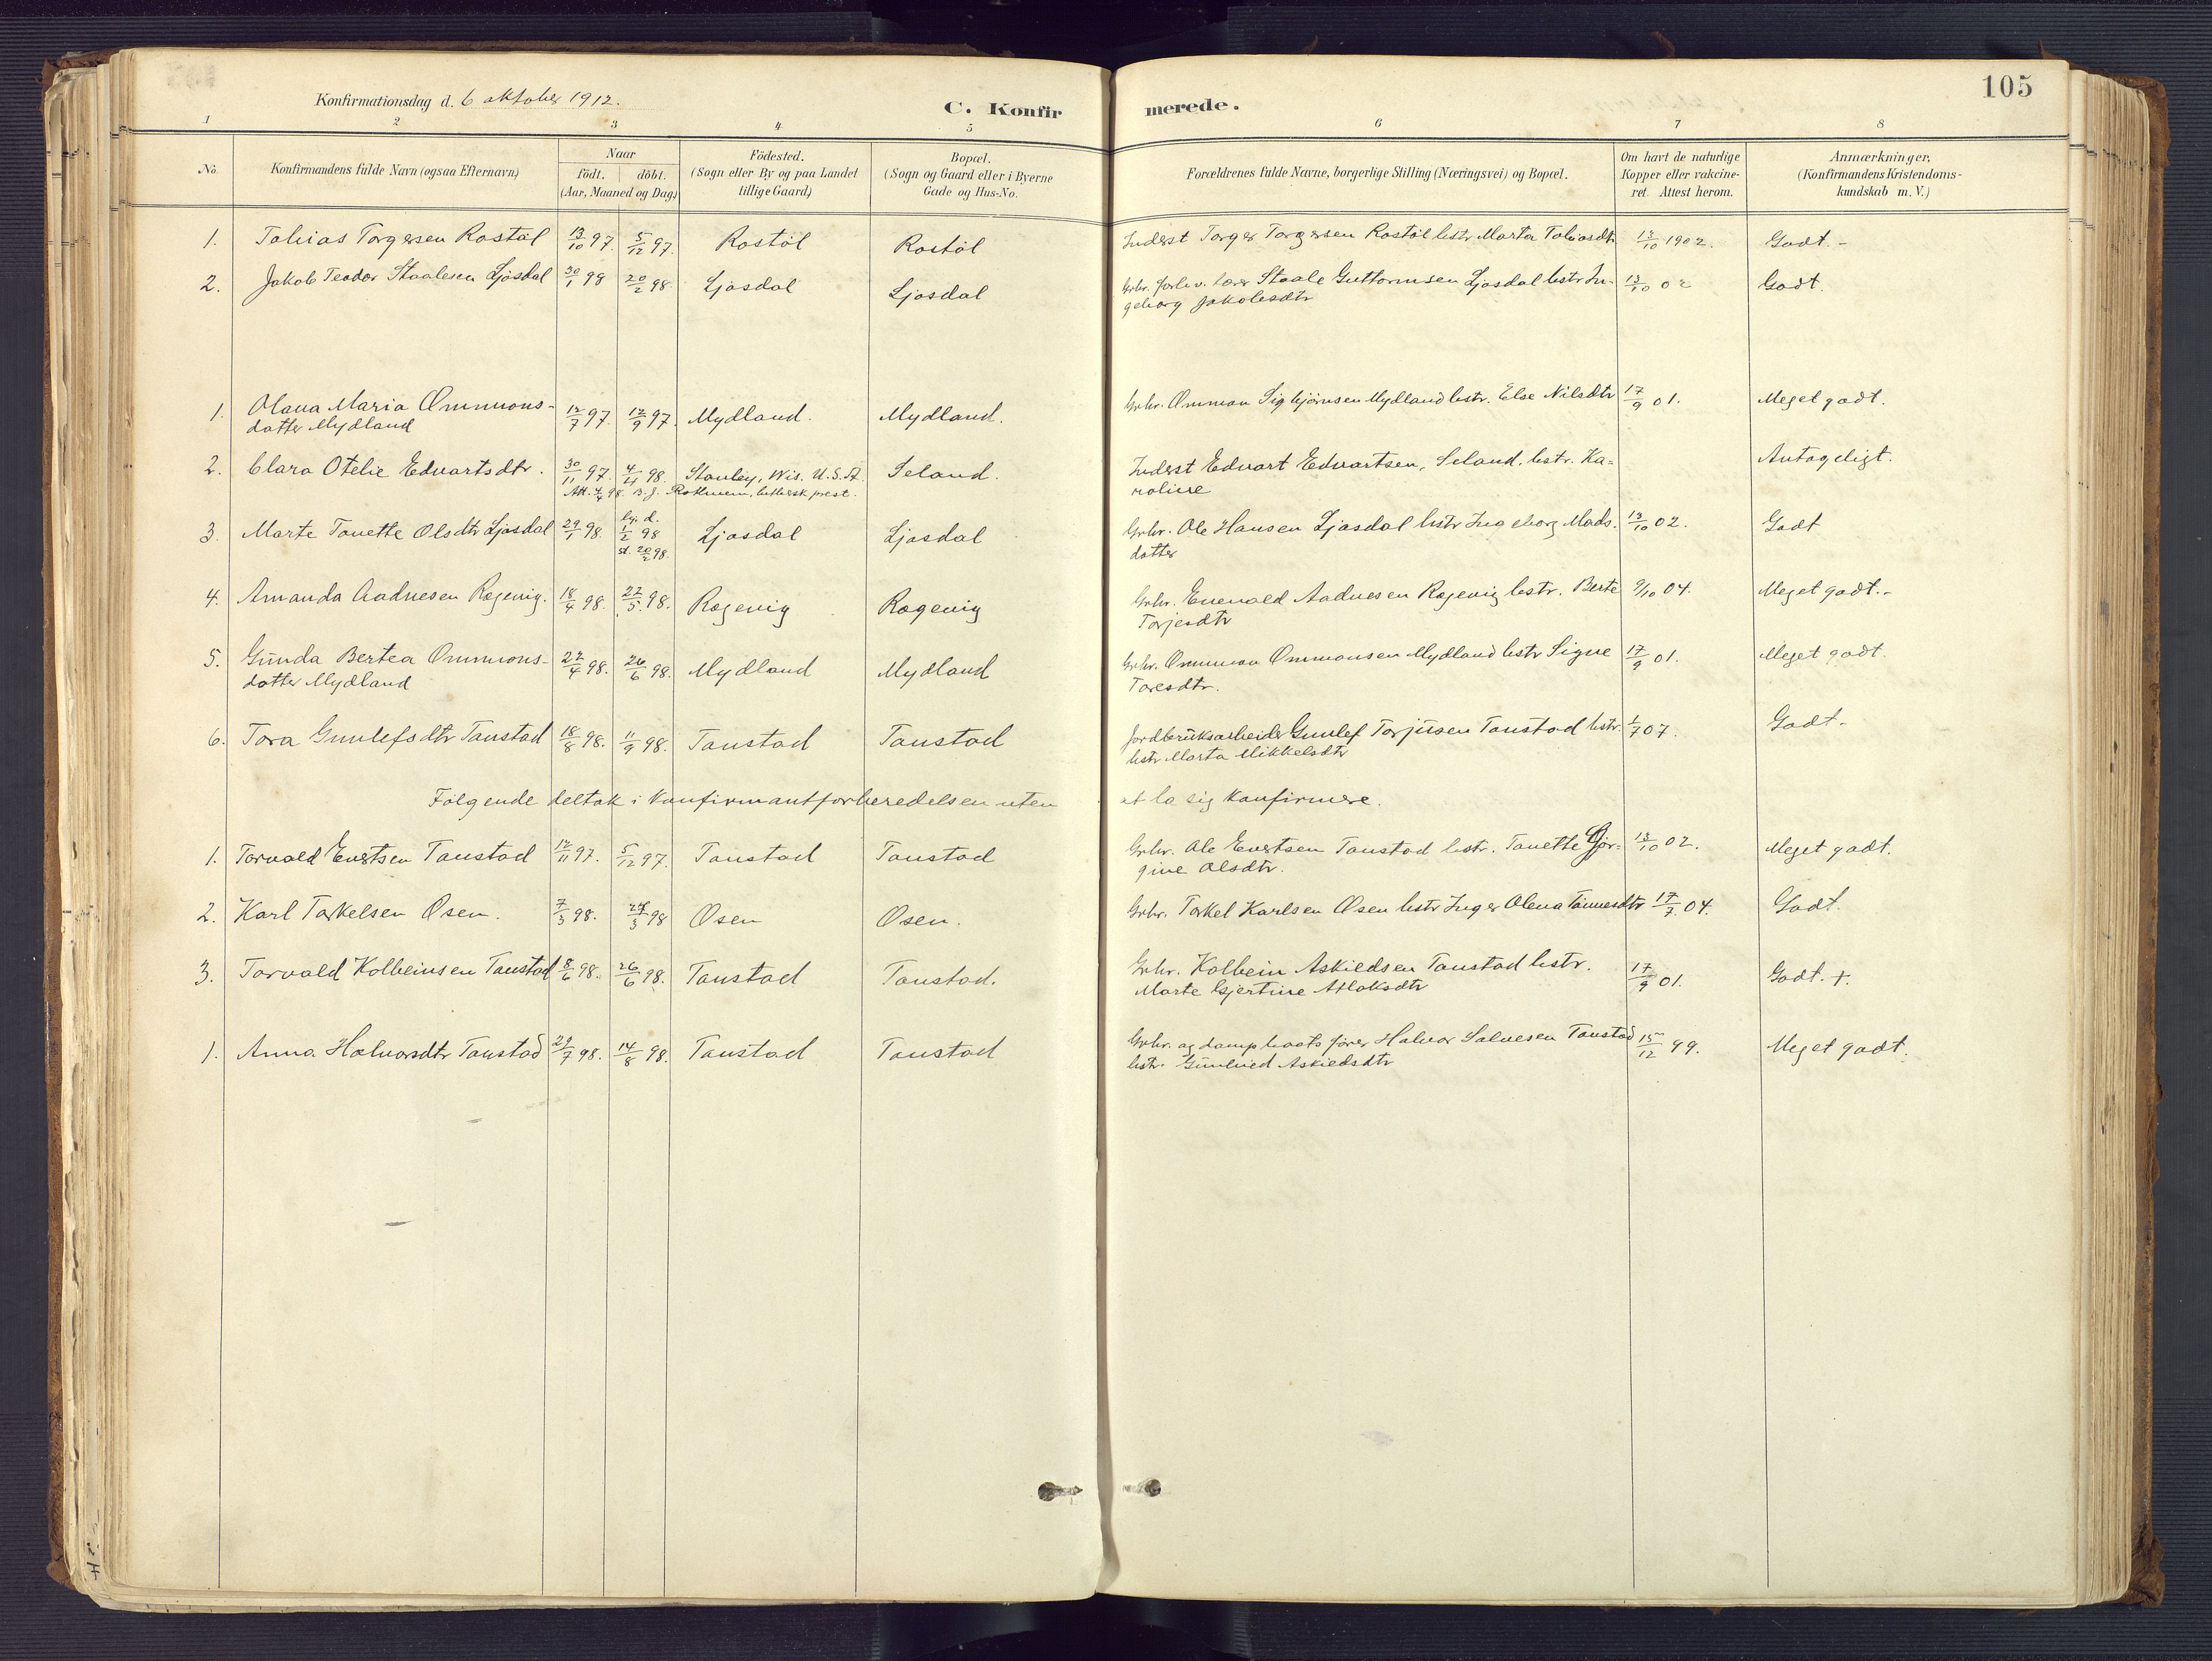 105
Konfirmationsdag d. 6 oktober 1912.
C. Konfirmerede.
1 2 3 4 5 6 7 8
No. Konfirmandens fulde Navn (ogsaa Efternavn) Naar födt. döbt. (Aar, Maaned og Dag) Födested. (Sogn eller By og paa Landet tillige Gaard) Bopæl. (Sogn og Gaard eller i Byerne Gade og Hus-No. Forældrenes fulde Navne, borgerlige Stilling (Næringsvei) og Bopæl. Om havt de naturlige Kopper eller vakcineret. Attest herom. Anmærkninger. (Konfirmandens Kristendomskundskab m. V.)
1. Tobias Torgersen Rostöl 13/10 97. 5/12 97. Rostöl Rostöl Inderst Torger Torgersen Rostöl hstr Marta Tobiasdtr 13/10 1902. Godt.-
2. Jakob Teodor Staalesen Ljosdal 30/1 98 20/2 98. Ljosdal Ljosdal Grbr. Staale Guttormsen Ljosdal hstr In-
geborg Jakobsdtr 13/10 02 Godt.
1. Olava Maria Ommons-
datter Mydland 12/7 97. 12/9 97. Mydland. Mydland. Grbr. Ommon Sigbjörnsen Mydland hstr. Else Nilsdtr 17/9 01. Meget godt.
2. Clara Otelie Edvartsdtr. 30/11 97. 4/4 98. Stanley, Wis. U.S.A. Seland. Inderst Edvart Edvartsen, Seland. hstr. Ka=
roline Antageligt.
Att. 4/4 98. B. J. Rothnem, luthersk prest.
3. Marte Tonette Olsdtr Ljosdal 29/1 98. hj. d. 1/2 98 st. 20/2 98. Ljosdal Ljosdal Grbr. Ole Hansen Ljosdal hstr Ingeborg Mads-
datter 13/10 02. Godt
4. Amanda Aadnesen Rogevig. 18/4 98. 22/5 98. Rogevig Rogevig Grbr. Enevald Aadnesen Rogevig hstr. Berte
Torjesdtr 9/10 04. Meget godt.-
5. Gunda Bertea Ommons-
datter Mydland 22/4 98. 26/6 98. Mydland Mydland Grbr. Ommon Ommonsen Mydland hstr Signe
Toresdtr. 17/9 01. Meget godt.
6. Tora Gunlefsdtr Tonstad 18/8 98. 11/9 98. Tonstad Tonstad Jordbruksarbeider Gunlef Torjusen Tonstad hstr.
hstr Marta Mikkelsdtr 1/7 07. Godt-
Følgende deltok i konfirmantforberedelsen uten at la sig konfirmere.
1. Torvald Evertsen Tonstad 12/11 97. 5/12 97. Tonstad Tonstad Grbr. Ole Evertsen Tonstad hstr. Tonette Gjor=
gine Olsdtr. 13/10 02. Meget godt.
2. Karl Torkelsen Osen. 7/3 98. 27/3 98 Osen Osen. Grbr. Torkel Karlsen Osen hstr Inger Olena Tönnesdtr 17/7 04. Godt.
3. Torvald Kolbeinsen Tonstad 8/6 98. 26/6 98. Tonstad Tonstad. Grbr. Kolbein Askildsen Tonstad hstr.
Marte Gjertine Atlaksdtr 17/9 01. Godt. +.
1. Anna Halvorsdtr Tonstad 29/7 98. 14/8 98. Tonstad Tonstad Grbr. og dampbaatsförer Halvor Salvesen Tonstad
hstr. Gunhild Askildsdtr 15/12 99. Meget godt.